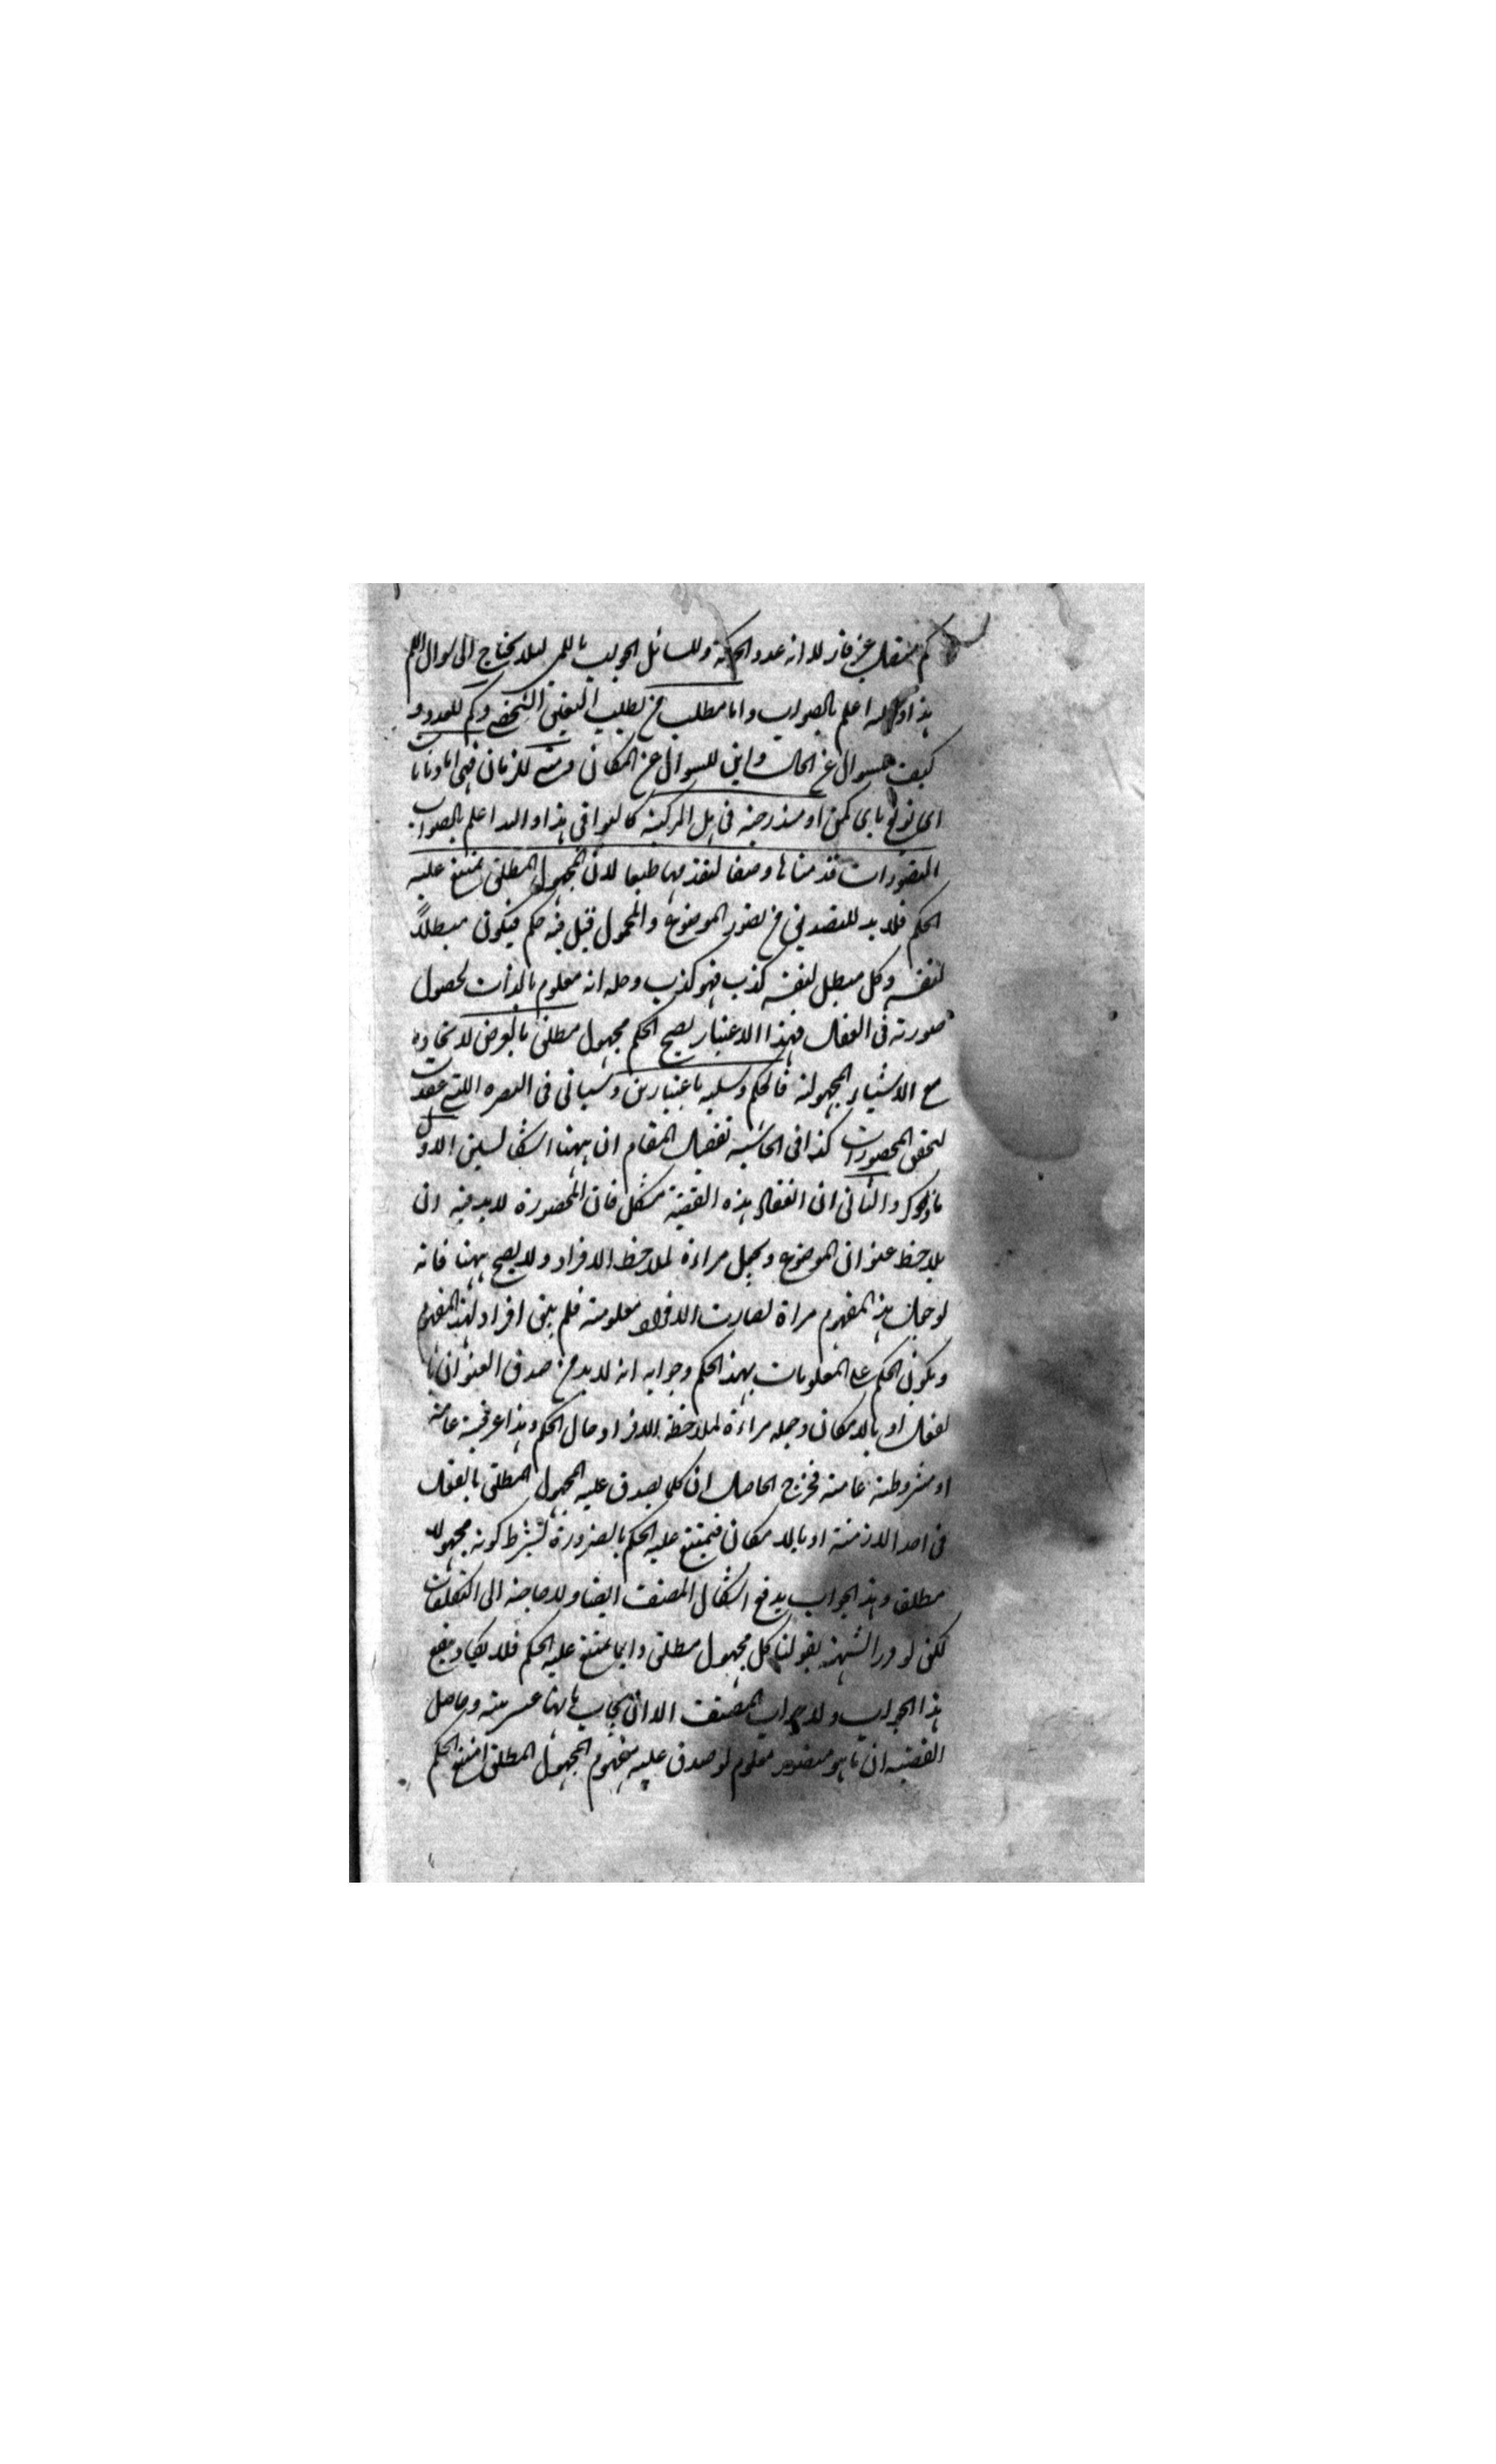 كم منفصل غير قار لا انه عدد الحركة وللسائل الجواب باللمى لئلا يحتاج الى سوال اللم
هذا والله اعلم بالصواب واما مطلب من لطلب التعين الشخصى وكم للعدد و
كيف لسوال عن الحال واين للسوال عن المكان ومتى للزمان فهى اما ذنابات
اى توابع باى كمن او مندرجة فى هل المركبة كالبواقى هذا والله اعلم بالصواب
التصورات قدمناها وضعا لتقدمها طبعا لان المجهول المطلق يمتنع عليه
الحكم فلا بد للتصديق من تصور الموضوع والمحمول قيل فيه حكم فيكون مبطلاً
لنفسه وكل مبطل لنفسه كذب فهو كذب وحله انه معلوم بالذات لحصول
صورته فى العقل فبهذا الاعتبار يصح الحكم مجهول مطلق بالعرض لاتحاده
مع الاشياء المجهولة فالحكم وسلبه باعتبارين وسياتى فى التبصرة اللتى عقدت
لتحقق المحصورات كذا فى الحاشية تفصيل المقام ان ههنا اشكالين الاول
ما ذكر والثانى ان انعقاد هذه القضية مشكل فان المحصورة لا بد فيه ان
يلاحظ عنوان الموضوع ويجعل مراءة لملاحظة الافراد ولا يصح ههنا فانه
لو جعل هذا المفهوم مراة لصارت الافراد معلومة فلم يبق افراد لهذا المفهوم
ويكون الحكم على المعلومات بهذا الحكم وجوابه انه لا بد من صدق العنوان با
لفعل او بالامكان وجعله مراءة لملاحظة الافراد حال الحكم وهذا عرفية عامة
او مشروطة عامة فخرج الحاصل ان كلما يصدق عليه المجهول المطلق بالفعل
فى احد الازمنة او بالامكان فيمتنع عليه الحكم بالضرورة بشرط كونه مجهولا
مطلقا وهذا الجواب يدفع اشكال المصنف ايضا ولا حاجة الى التكلفات
لكن لو قرر الشبهة بقولنا كل مجهول مطلق دايما يمتنع عليه الحكم فلا يكاد ينفع
هذا الجواب ولا جواب المصنف الا ان يجاب بانها غير بتية وحاصل
القضية ان ما هو متصور معلوم لو صدق عليه مفهوم المجهول المطلق امتنع الحكم